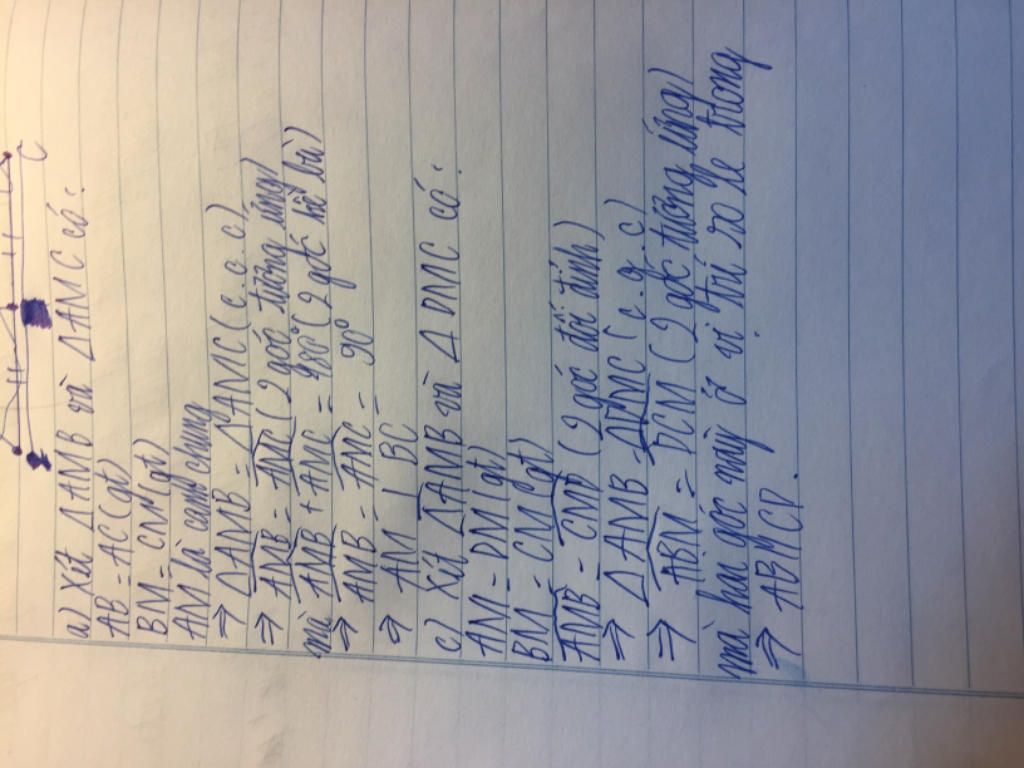 C
a) Xét ΔAMB và ΔAMC có:
AB = AC (gt)
BM = CM (gt)
AM là cạnh chung
⇒ ΔAMB = ΔAMC (c.c.c)
⇒ AMB = AMC (2 góc tương ứng)
mà AMB + AMC = 180° (2 góc kề bù)
⇒ AMB = AMC = 90°
⇒ AM ⊥ BC
c) Xét ΔAMB và ΔDMC có:
AM = DM (gt)
BM = CM (gt)
AMB = CMD (2 góc đối đỉnh)
⇒ ΔAMB = ΔDMC (c.g.c)
⇒ ABM = DCM (2 góc tương ứng)
mà hai góc này ở vị trí so le trong
⇒ AB // CD.